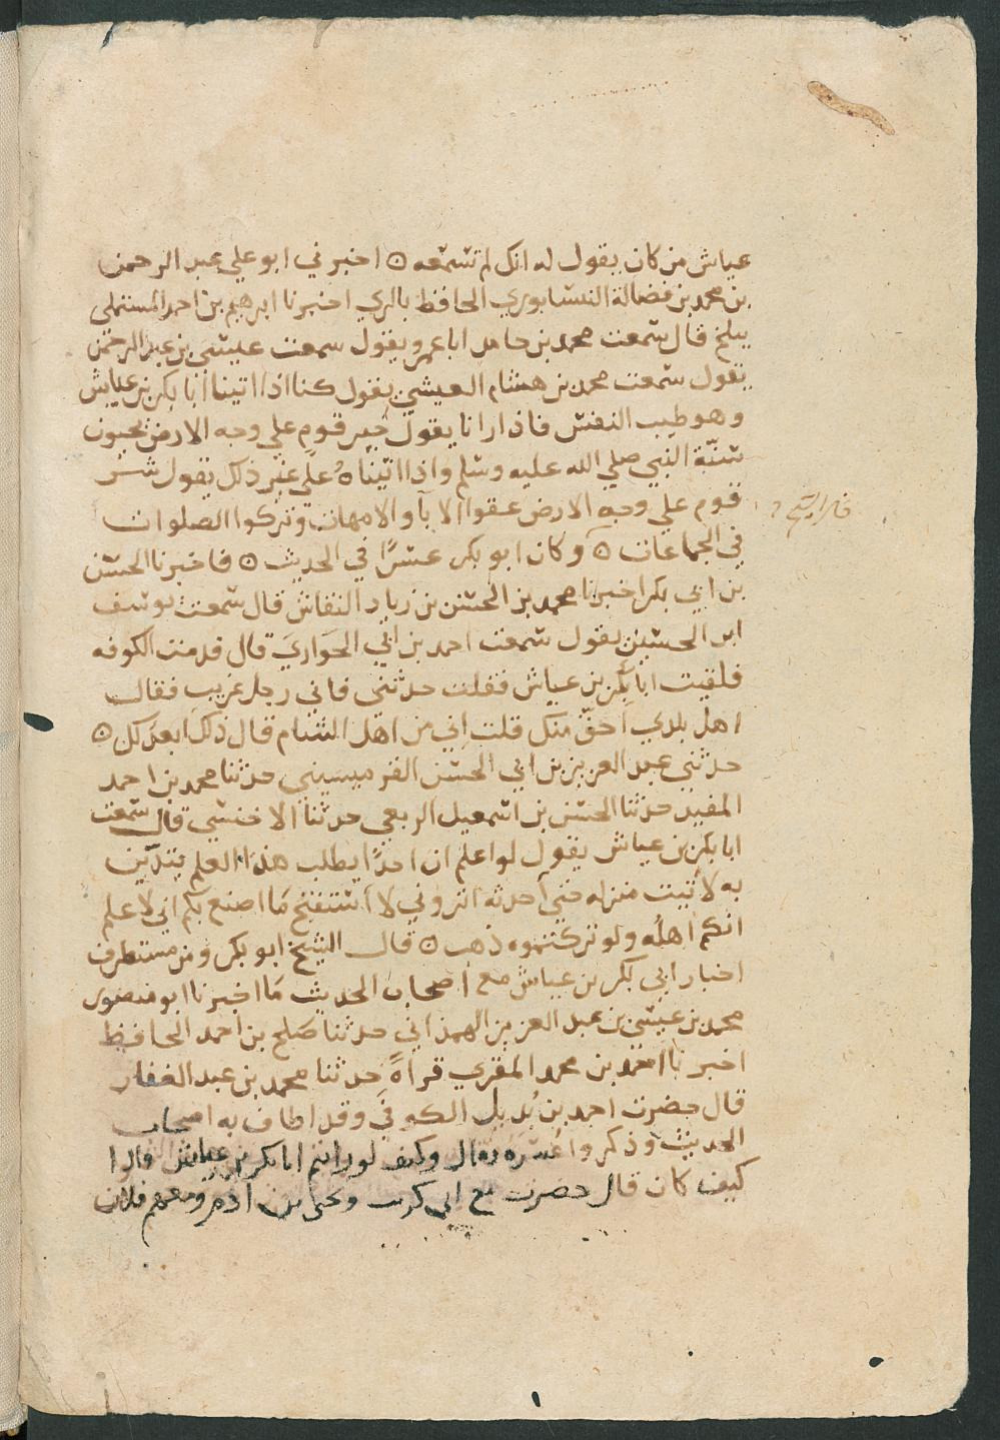 عياش من كان يقول له انك لم تسمعه ۞ اخبرني ابو علي عبد الرحمن
بن محمد بن فضالة النيسابوري الحافظ بالري اخبرنا ابرهيم بن احمد المستملي
ببلخ قال سمعت محمد بن حامد ابا عمرو يقول سمعت عيسى بن عبد الرحمن
يقول سمعت محمد بن هشام العيشي يقول كنا اذا اتينا ابا بكر بن عياش
وهو طيب النفس فاذا رانا يقول خير قوم علي وجه الارض يحيون
سنة النبي صلي الله عليه وسلم واذا اتيناه علي غير ذلك يقول شر
قوم علي وجه الارض عقوا الابآ والامهات وتركوا الصلوات
في الجماعات ۞ وكان ابو بكر عسرا في الحديث ۞ فاخبرنا الحسن
بن ابي بكر اخبرنا محمد بن الحسن بن زياد النقاش قال سمعت يوسف
ابن الحسين يقول سمعت احمد بن ابي الحواري قال قدمت الكوفه
فلقيت ابا بكر بن عياش فقلت حدثني فاني رجل غريب فقال
اهل بلدي احق منك قلت اني من اهل الشام قال ذلك ابعد لك ۞
حدثني عبد العزيز بن ابي الحسن القرميسيني حدثنا محمد بن احمد
المفيد حدثنا الحسن بن اسمعيل الربعي حدثنا الاخنسي قال سمعت
ابا بكر بن عياش يقول لو اعلم ان احدا يطلب هذا العلم يتدين
به لاتيت منزله حتي احدثه اتروني لا استقبح ما اصنع بكم اني لا علم
انكم اهله ولو تركتموه ذهب ۞ قال الشيخ ابو بكر ومن مستطرف
اخبار ابي بكر بن عياش مع اصحاب الحديث ما اخبرنا ابو منصور
محمد بن عيسى بن عبد العزيز الهمذاني حدثنا صلح بن احمد الحافظ
اخبرنا احمد بن محمد المقري قراة حدثنا محمد بن عبد الغفار
قال حضرت احمد بن بديل الكوفي وقد اطاف به اصحاب
الحديث وذكروا عسره فقال وكيف لو رايتم ابا بكر بن عياش قالوا
كيف كان قال حضرت مع ابي كريب ويحيى بن آدم ومعهم فلان